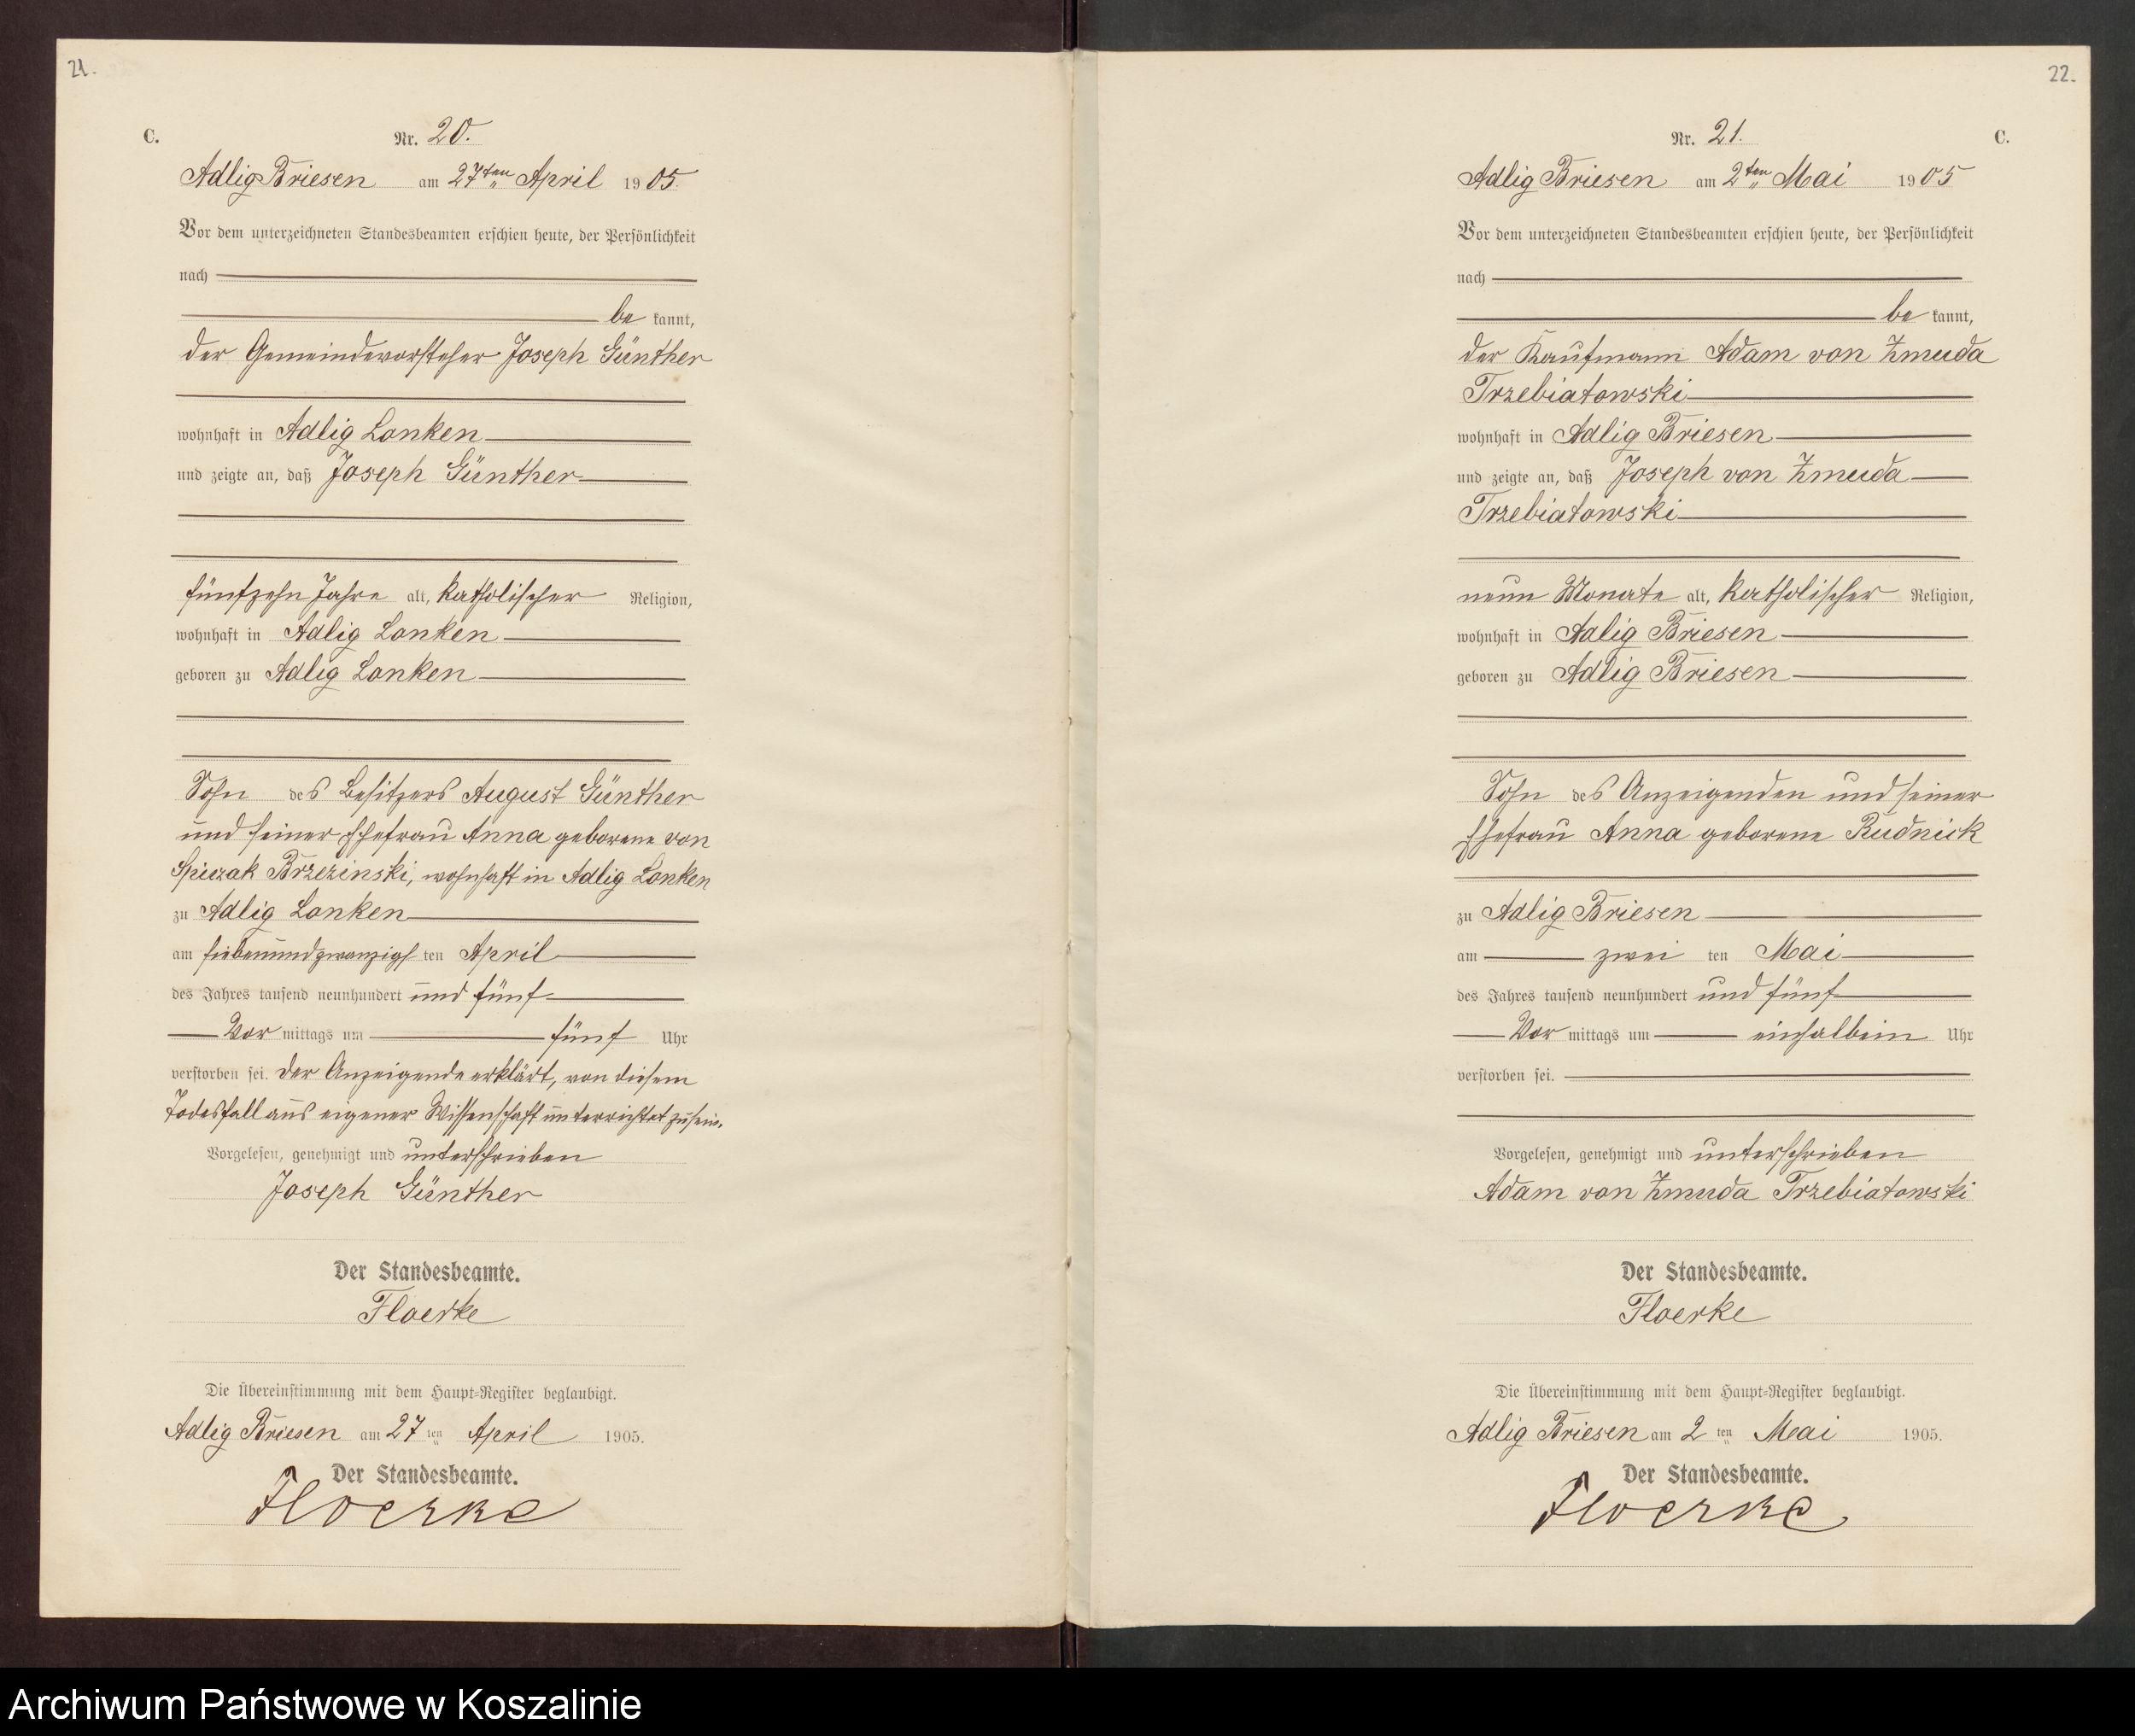 21.
C.
Nr. 20.
Adlig Briesen am 27ten April 1905.
Vor dem unterzeichneten Standesbeamten erschien heute, der Persönlichkeit
nach
be kannt,
der Gemeindevorsteher Joseph Günther
wohnhaft in Adlig Lonken
und zeigte an, daß Joseph Günther
fünfzehn Jahre alt, katholischer Religion,
wohnhaft in Adlig Lonken
geboren zu Adlig Lonken
Sohn des Besitzers August Günther
und seiner Ehefrau Anna geborene von
Spiczak Brzezinski, wohnhaft in Adlig Lonken
zu Adlig Lonken
am siebenundzwanzigs ten April
des Jahres tausend neunhundert und fünf
Vor mittags um fünf Uhr
verstorben sei. Der Anzeigende erklärt, von diesem
Todesfall aus eigener Wissenschaft unterrichtet zu sein.
Vorgelesen, genehmigt und unterschrieben
Joseph Günther
Der Standesbeamte.
Floerke
Die Übereinstimmung mit dem Haupt-Register beglaubigt.
Adlig Briesen am 27 ten April 1905.
Der Standesbeamte.
Floerke
22.
Nr. 21.
C.
Adlig Briesen am 2ten Mai 1905
Vor dem unterzeichneten Standesbeamten erschien heute, der Persönlichkeit
nach
be kannt,
der Kaufmann Adam von Zmuda
Trzebiatowski
wohnhaft in Adlig Briesen
und zeigte an, daß Joseph von Zmuda
Trzebiatowski
neun Monate alt, katholischer Religion,
wohnhaft in Adlig Briesen
geboren zu Adlig Briesen
Sohn des Anzeigenden und seiner
Ehefrau Anna geborene Rudnick
zu Adlig Briesen
am zwei ten Mai
des Jahres tausend neunhundert und fünf
Vor mittags um einhalbein Uhr
verstorben sei.
Vorgelesen, genehmigt und unterschrieben
Adam von Zmuda Trzebiatowski
Der Standesbeamte.
Floerke
Die Übereinstimmung mit dem Haupt-Register beglaubigt.
Adlig Briesen am 2 ten Mai 1905.
Der Standesbeamte.
Floerke
Archiwum Państwowe w Koszalinie